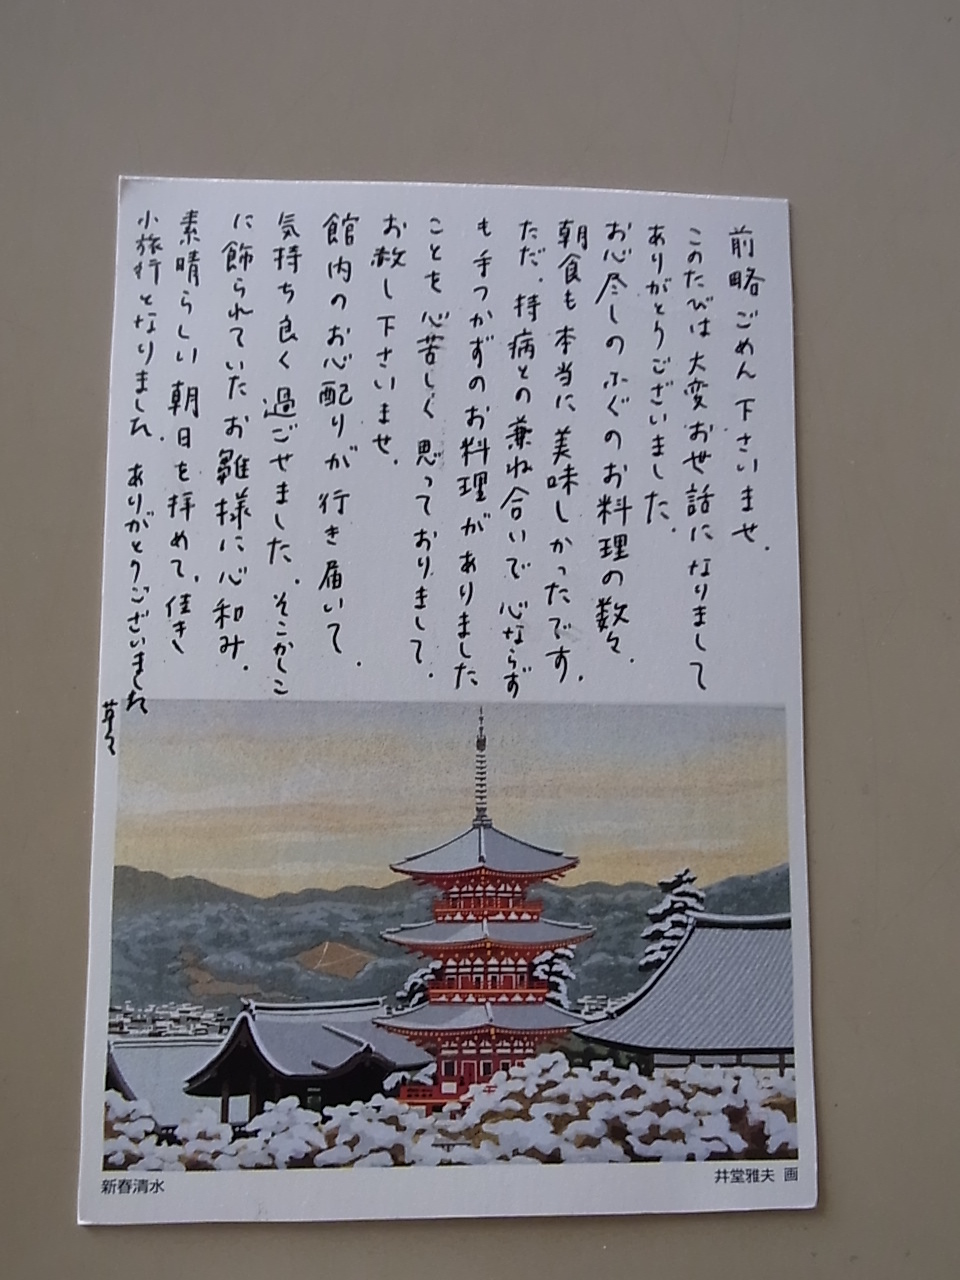 前略 ごめん下さいませ.
このたびは大変お世話になりまして
ありがとうございました.
お心尽しのふぐのお料理の数々.
朝食も本当に美味しかったです.
ただ、持病との兼ね合いで心ならず
も手つかずのお料理がありました
ことを心苦しく思っておりまして.
お赦し下さいませ.
館内のお心配りが行き届いて.
気持ち良く過ごせました. そこかしこ
に飾られていたお雛様に心和み.
素晴らしい朝日を拝めて、佳き
小旅行となりました. ありがとうございました
草々
新春清水
井堂雅夫 画